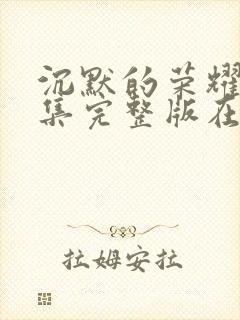 沉默的荣耀
集完整版在
拉姆安拉